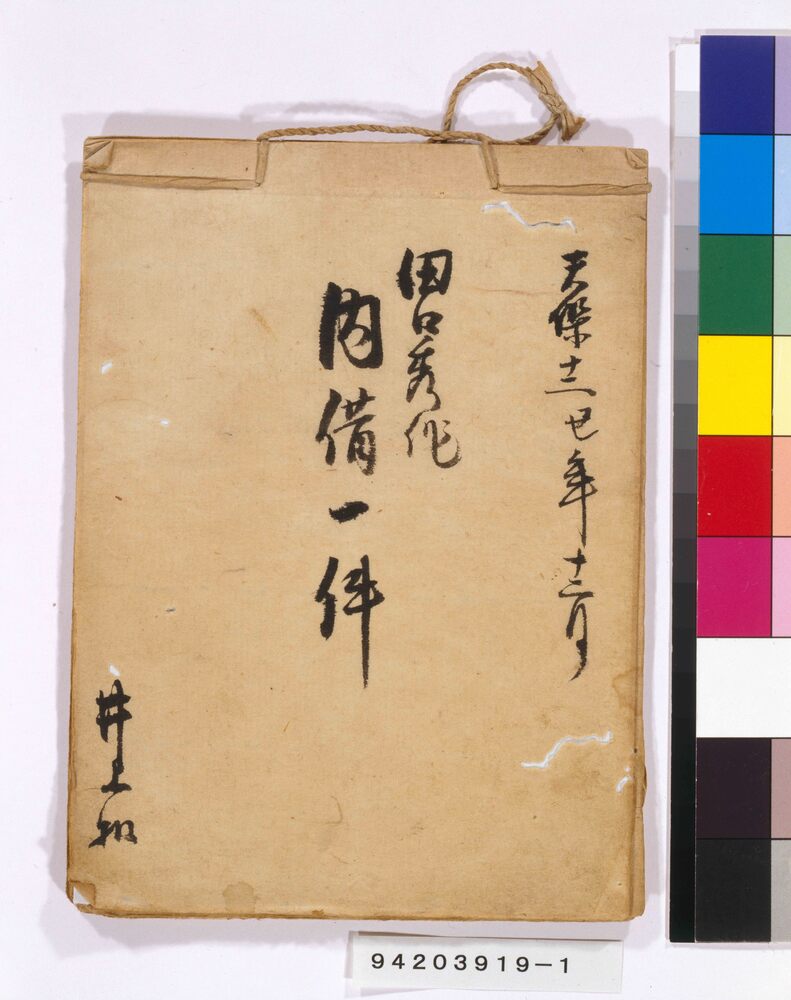 天保十二丑年十二月
田口秀作
内借一件
井上扣
94203919-1